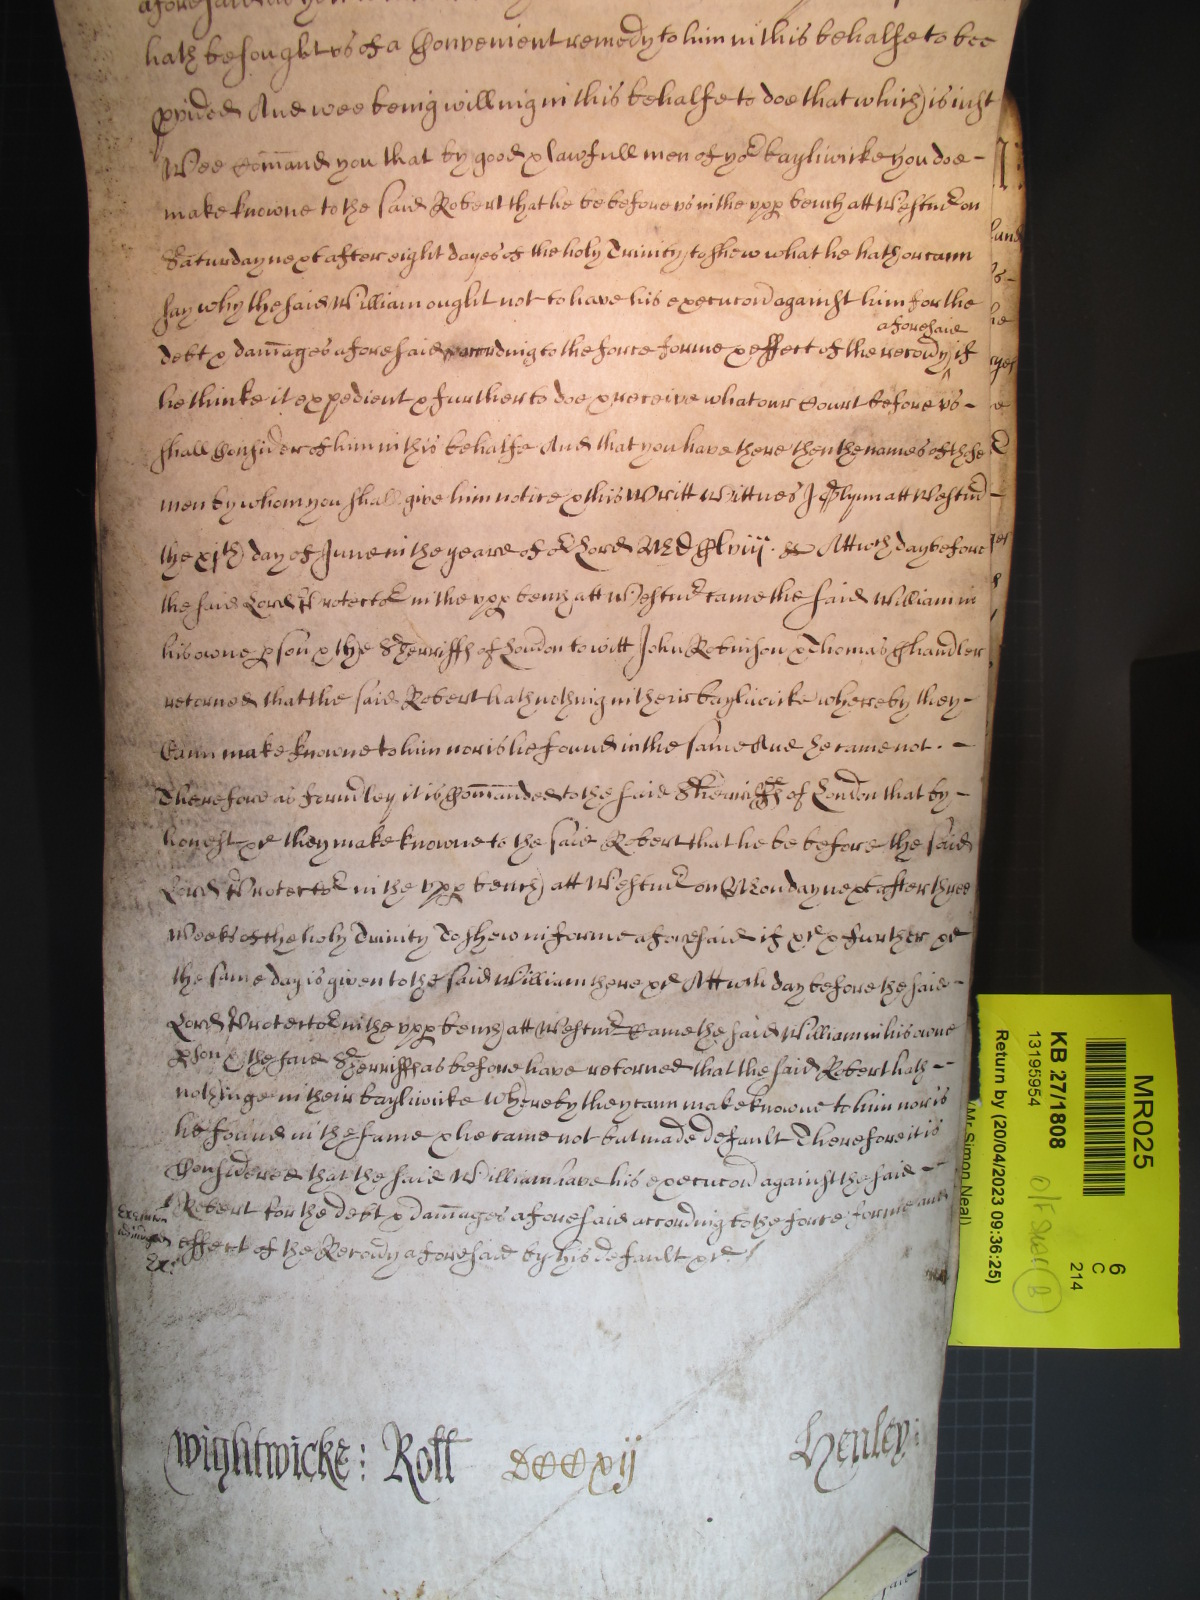 hath besought us of a Convenient remedy to him in this behalfe to bee
pvided And wee being willing in this behalfe to doe that which is iust
Wee Comand you that by good & lawfull men of yor bayliwicke you doe -
make knowne to the said Robert that he be before us in the upp bench att Westm on
Saturday next after eight dayes of the holy Trinity to shew what he hath or cann
say why the said William ought not to have his execucon against him for the
aforesaid
debt & damages aforesaid according to the force forme & effect of the recovy if
he thinke it expedient & further to doe & receive what our Court before us -
shall Consider of him in this behalfe And that you have there then the names of those
men by whom you shall give him notice & this Writt Wittnes J Glynn att Westm -
the xjth day of June in the yeare of or Lord MDClviij. Att wch day before
the said Lord Protector in the upp bench att Westm came the said William in
his owne pson & the Sherriffs of London to witt John Robinson & Thomas Chandler
retorned that the said Robert hath nothing in their bayliwicke whereby they -
Cann make knowne to him nor is he found in the same And he came not. -
Therefore as formley it is Comanded to the said Sherriffs of London that by -
honest &c they make knowne to the said Robert that he be before the said
Lord Protector in the upp bench att Westm on Monday next after three
Weeks of the holy Trinity To shew in forme aforesaid if &c & further &c
the same day is given to the said William there &c Att wch day before the said -
Lord Protector in the upp bench att Westm Came the said William in his owne
pson & the said Sherriffs as before have retorned that the said Robert hath -
nothinge in their bayliwicke Whereby they cann make knowne to him nor is
he found in the same & he came not but made default Therefore it is
Considered that the said William have his execucon against the said -
Robert for the debt & damages aforesaid according to the force forme and
effect of the Recovy aforesaid by his default &c
Wightwicke: Roll DCCCxij Henley:
MR025
KB 27/1808
13195954
Return by (20/04/2023 09:36:25)
(Mr Simon Neal)
6
C
214